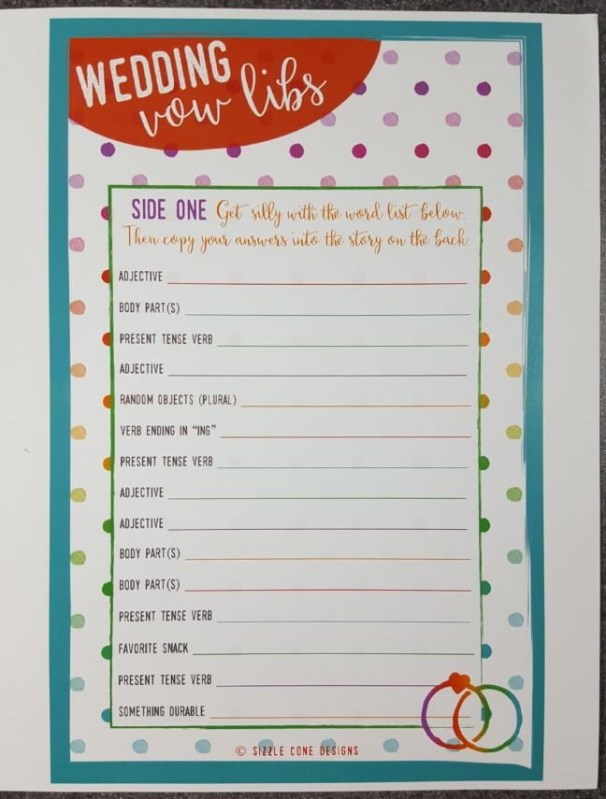 WEDDING
vow libs
SIDE ONE Get silly with the word list below.
Then copy your answers into the story on the back.
ADJECTIVE
BODY PART(S)
PRESENT TENSE VERB
ADJECTIVE
RANDOM OBJECTS (PLURAL)
VERB ENDING IN "ING"
PRESENT TENSE VERB
ADJECTIVE
ADJECTIVE
BODY PART(S)
BODY PART(S)
PRESENT TENSE VERB
FAVORITE SNACK
PRESENT TENSE VERB
SOMETHING DURABLE
© SIZZLE CONE DESIGNS